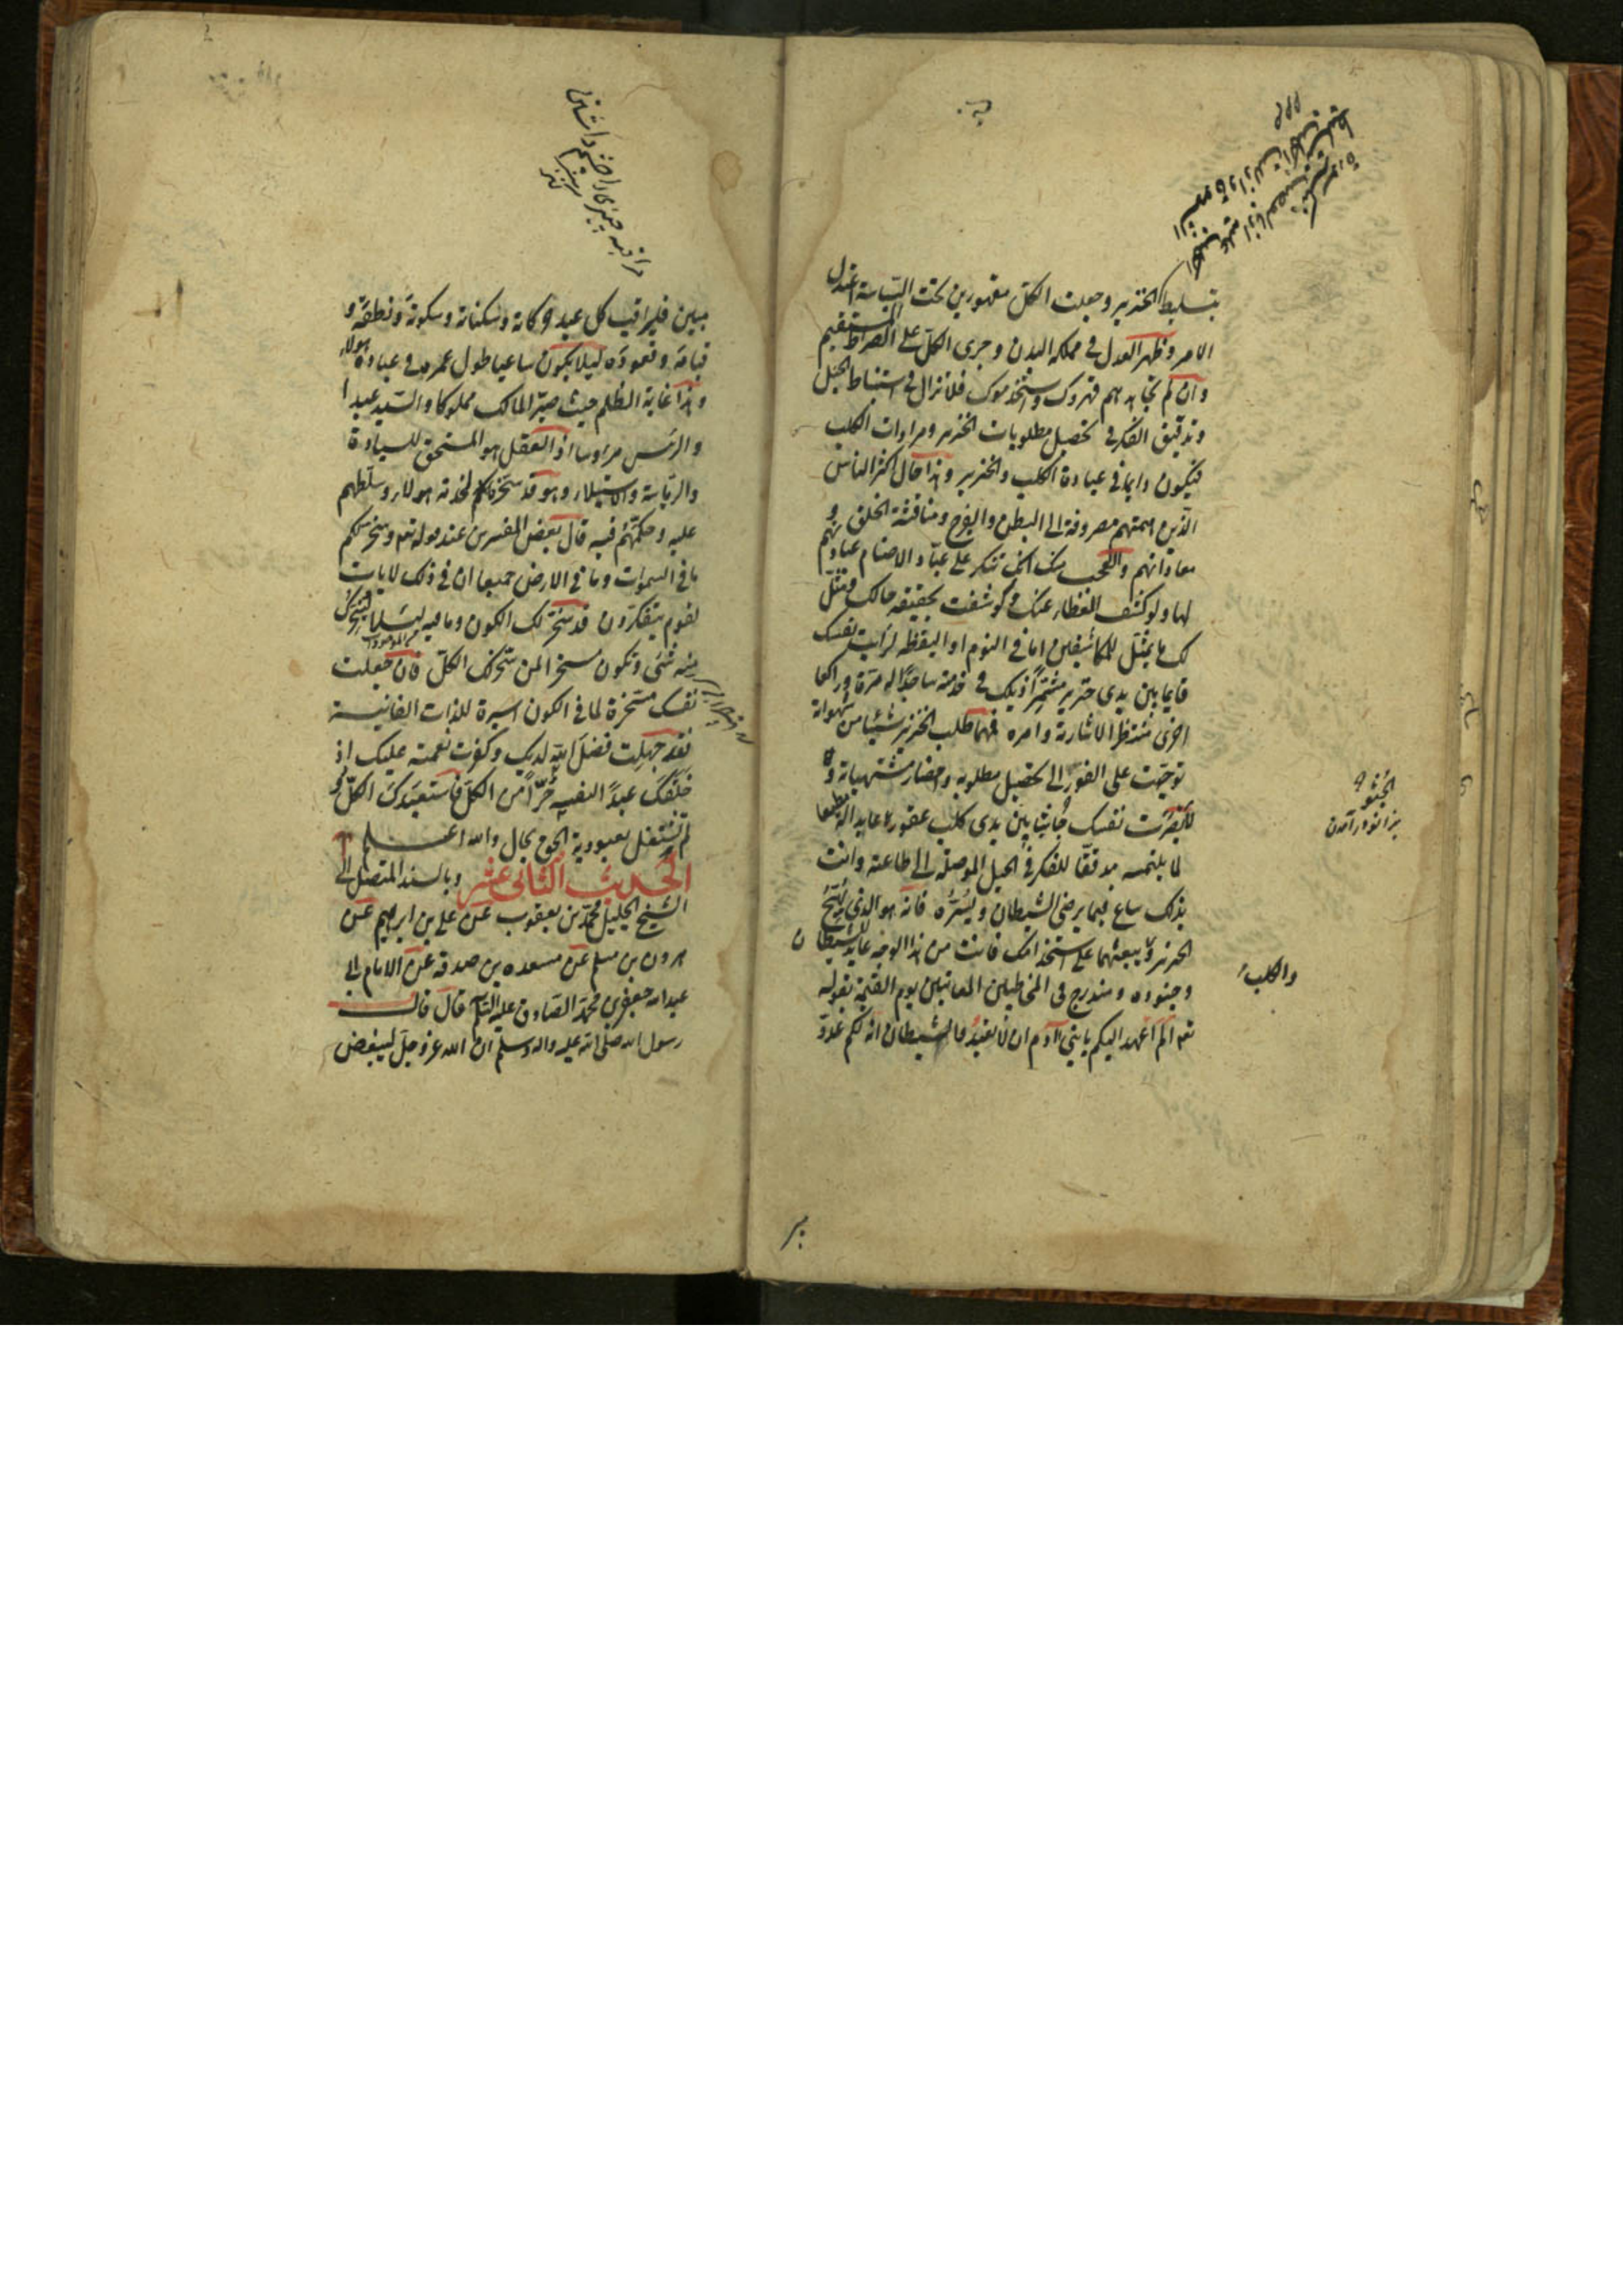 بتسليط الخنزير وجعلت الكل مقهورين تحت السياسة اعتدل
الامر وظهر العدل في مملكة البدن وجرى الكل على الصراط المستقيم
وان لم تجاهدهم قهروك واستخدموك فلا تزال في استنباط الحيل
وتدقيق الفكر في تحصيل مطلوبات الخنزير ومرادات الكلب
فيكون دايما في عبادة الكلب والخنزير وهذا حال اكثر الناس
الذين همتهم مصروفة الى البطن والفرج ومناقشة الخلق و
معاداتهم والعجب منك انك تنكر على عباد الاصنام عبادتهم
لها ولو كشف الغطاء عنك وكوشفت بحقيقة حالك ومثل
لك ما يمثل للمكاشفين اما في النوم او اليقظة لرايت نفسك
قايما بين يدي خنزير مشمرا ذيلك في خدمته ساجدا له مرة وراكعا
اخرى منتظرا لاشارته وامره فمهما طلب الخنزير شيئا من شهواته
توجهت على الفور الى تحصيل مطلوبه واحضار مشتهياته و
لابصرت نفسك جاثيا بين يدي كلب عقور عابدا له مطيعا
لما يلتمسه مدققا للفكر في الحيل الموصلة الى طاعته وانت
بذلك ساع فيما يرضى الشيطان ويسره فانه هو الذي يهيج
الخنزير ويبعثهما على استخدامك فانت من هذا الوجه عابد للشيطان
وجنوده ومندرج في المخاطبين المعاتبين يوم القيمة بقوله
تعم الم اعهد اليكم يا بني آدم ان لا تعبدوا الشيطان انه لكم عدو
الجثو
بزانو درآمدن
والكلب
مبين فليراقب كل عبد حركاته وسكناته وسكوته ونطقه و
قيامه وقعوده ليلا يكون ساعيا طول عمره في عبادة هولاء
وهذا غاية الظلم حيث صير المالك مملوكا والسيد عبدا
والرئيس مرؤسا اذ العقل هو المستحق للسيادة
والرياسة والاستيلاء وهو قد سخره لخدمة هولاء وسلطهم
عليه وحكمهم فيه قال بعض المفسرين عند قوله تعم وسخر لكم
ما في السموات وما في الارض جميعا ان في ذلك لايات
لقوم يتفكرون قد سخر لك الكون وما فيه ليسلا يسخرك
منه شئ وتكون مسخرا لمن سخر لك الكل فان جعلت
نفسك مسخرة لما في الكون اسيرة للذات الفانية
فقد جهلت فضل الله لديك وكفرت نعمته عليك اذ
خلقك عبدا لنفسه حرا من الكل فاستعبدك الكل و
لم تشتغل بعبودية الحق بحال والله اعلم
الحديث الثاني عشر وبالسند المتصل الى
الشيخ الجليل محمد بن يعقوب عن علي بن ابرهيم عن
هرون بن مسلم عن مسعده بن صدقه عن الامام ابي
عبد الله جعفر بن محمد الصادق عليه السلم قال قال
رسول الله صلى الله عليه واله وسلم ان الله عز وجل ليبغض